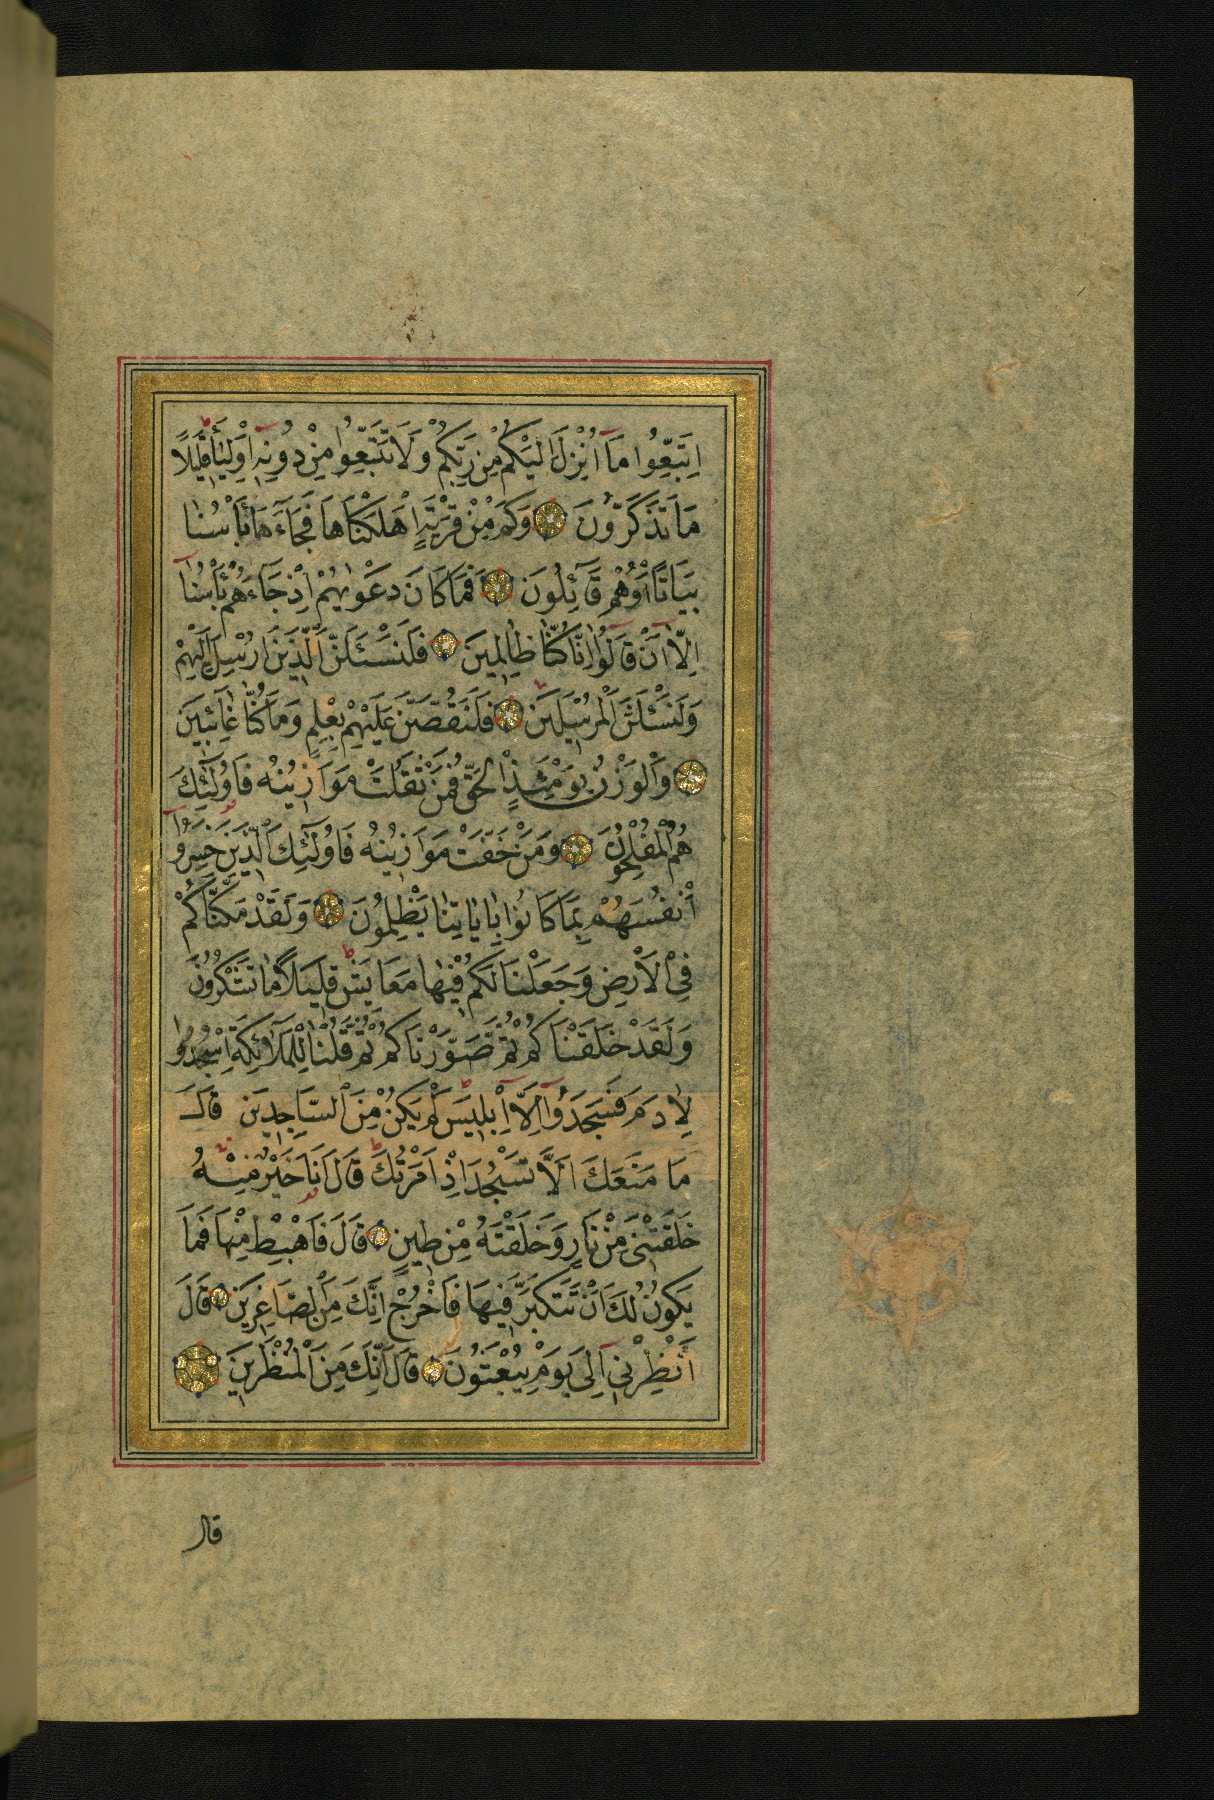 اِتَّبِعُوا مَآ اُنْزِلَ اِلَيْكُمْ مِنْ رَبِّكُمْ وَلَا تَتَّبِعُوا مِنْ دُونِهٖٓ اَوْلِيَآءَ قَلِيلًا
مَا تَذَكَّرُونَ وَكَمْ مِنْ قَرْيَةٍ اَهْلَكْنَاهَا فَجَآءَهَا بَأْسُنَا
بَيَاتًا اَوْ هُمْ قَآئِلُونَ فَمَا كَانَ دَعْوٰيهُمْ اِذْ جَآءَهُمْ بَأْسُنَآ
اِلَّآ اَنْ قَالُوٓا اِنَّا كُنَّا ظَالِمِينَ فَلَنَسْئَلَنَّ الَّذِينَ اُرْسِلَ اِلَيْهِمْ
وَلَنَسْئَلَنَّ الْمُرْسَلِينَ فَلَنَقُصَّنَّ عَلَيْهِمْ بِعِلْمٍ وَمَا كُنَّا غَآئِبِينَ
وَالْوَزْنُ يَوْمَئِذٍ الْحَقُّ فَمَنْ ثَقُلَتْ مَوَازِينُهُ فَاُولٰٓئِكَ
هُمُ الْمُفْلِحُونَ وَمَنْ خَفَّتْ مَوَازِينُهُ فَاُولٰٓئِكَ الَّذِينَ خَسِرُوٓا
اَنْفُسَهُمْ بِمَا كَانُوا بِاٰيَاتِنَا يَظْلِمُونَ وَلَقَدْ مَكَّنَّاكُمْ
فِي الْاَرْضِ وَجَعَلْنَا لَكُمْ فِيهَا مَعَايِشَ قَلِيلًا مَا تَشْكُرُونَ
وَلَقَدْ خَلَقْنَاكُمْ ثُمَّ صَوَّرْنَاكُمْ ثُمَّ قُلْنَا لِلْمَلَآئِكَةِ اسْجُدُوا
لِاٰدَمَ فَسَجَدُوٓا اِلَّآ اِبْلِيسَ لَمْ يَكُنْ مِنَ السَّاجِدِينَ قَالَ
مَا مَنَعَكَ اَلَّا تَسْجُدَ اِذْ اَمَرْتُكَ قَالَ اَنَا خَيْرٌ مِنْهُ
خَلَقْتَنِي مِنْ نَارٍ وَخَلَقْتَهُ مِنْ طِينٍ قَالَ فَاهْبِطْ مِنْهَا فَمَا
يَكُونُ لَكَ اَنْ تَتَكَبَّرَ فِيهَا فَاخْرُجْ اِنَّكَ مِنَ الصَّاغِرِينَ قَالَ
اَنْظِرْنِي اِلَى يَوْمِ يُبْعَثُونَ قَالَ اِنَّكَ مِنَ الْمُنْظَرِينَ
قال